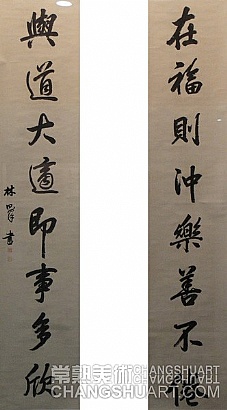 在福則沖樂善不倦
與道大適即事多欣
林 書
常熟美術
CHANGSHUART
CHANGSHUART.COM